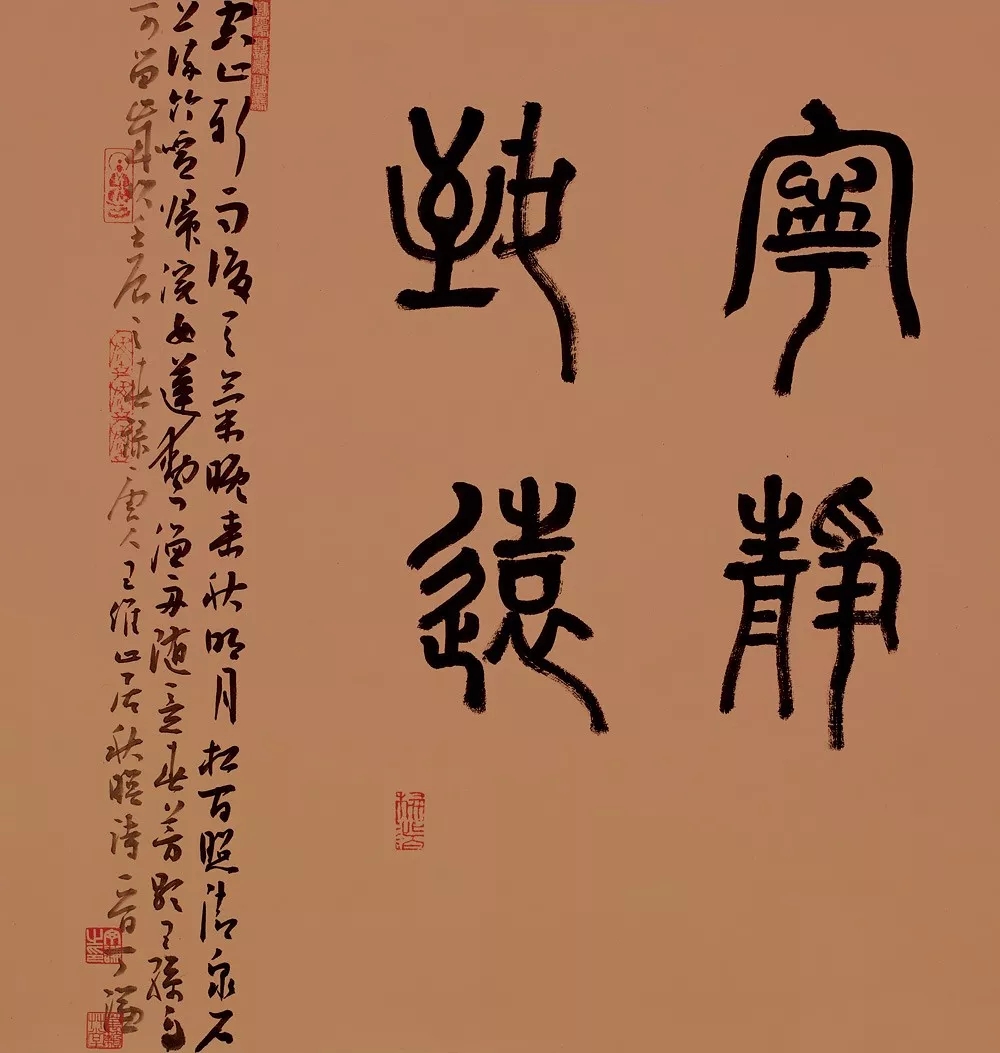 寧靜
致遠
空山新雨後天氣晚来秋明月松間照清泉石
上流竹喧歸浣女蓮動下漁舟随意春芳歇王孫自
可留歲次壬辰之春録唐人王維山居秋暝詩一首丁謙